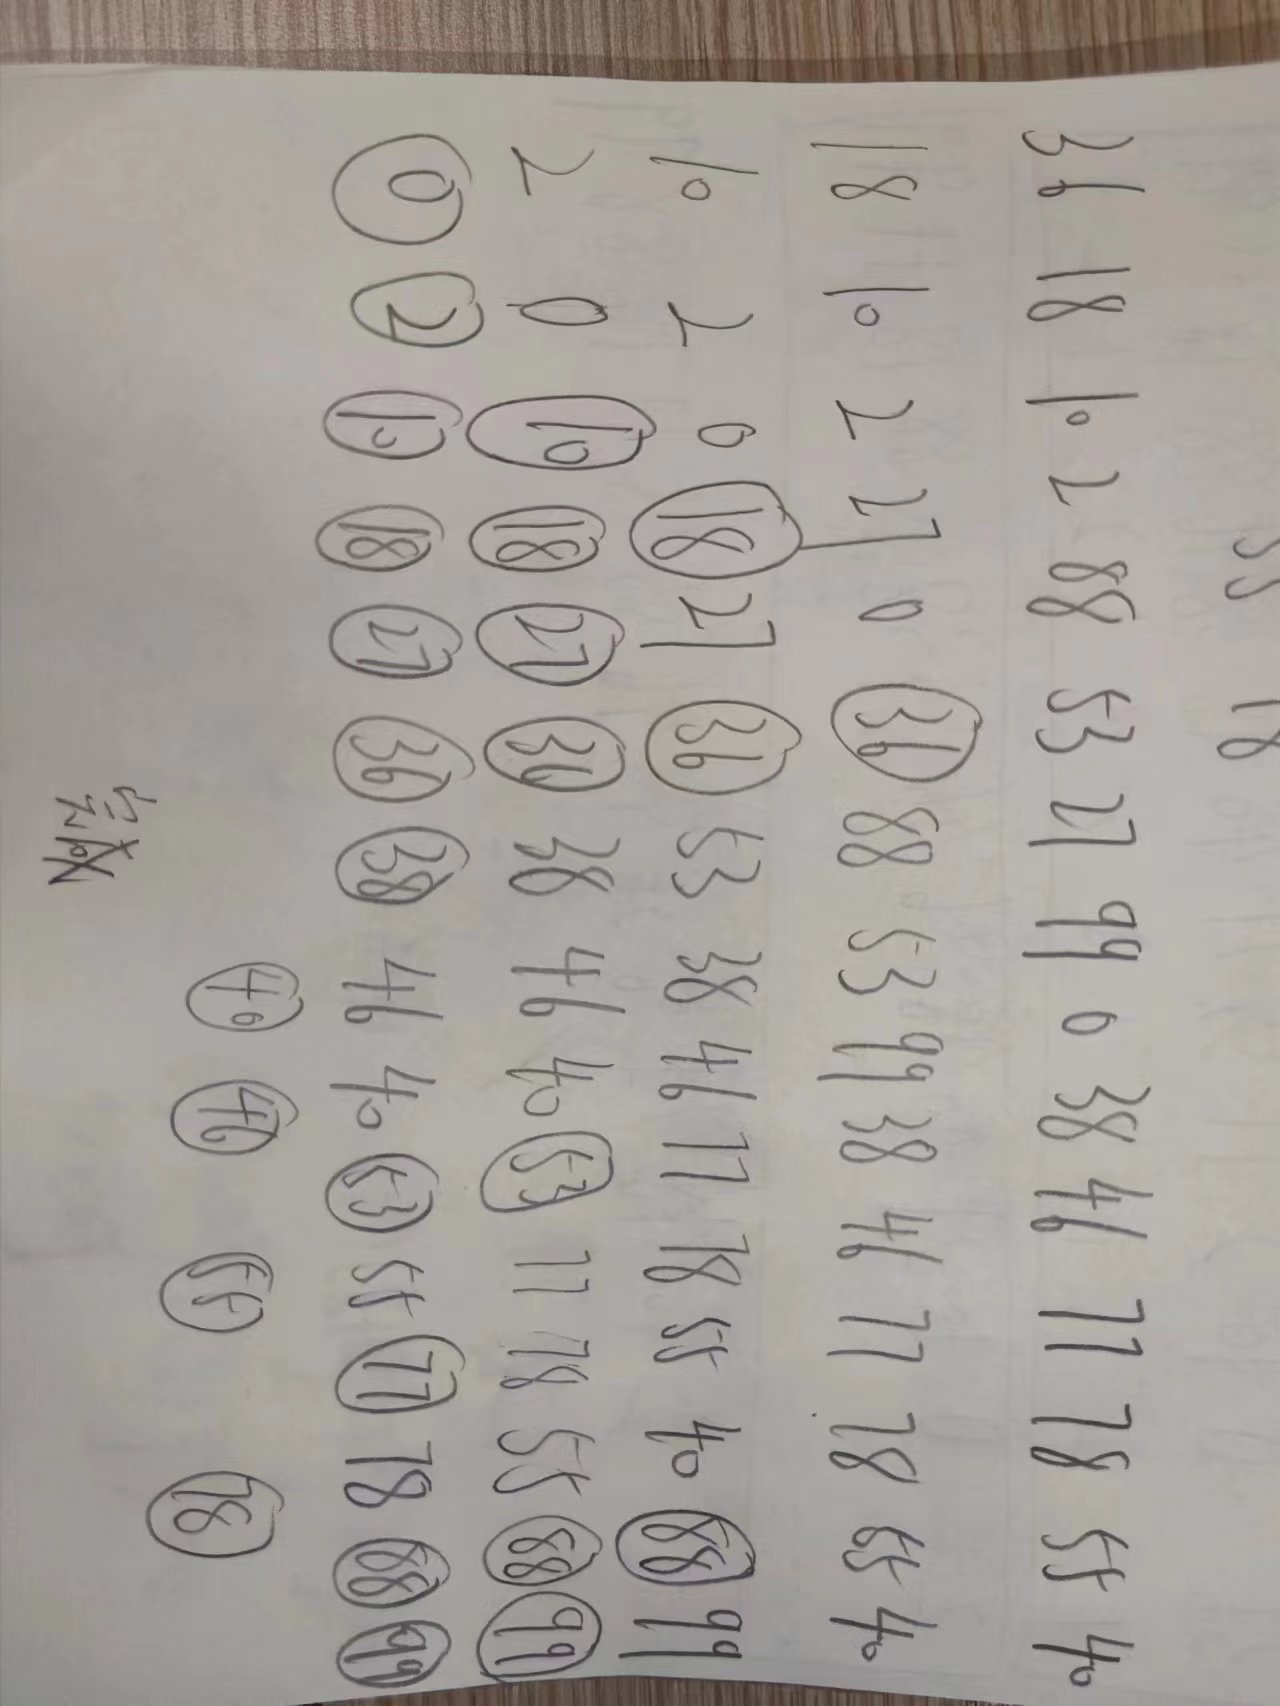 55 18
36 18 10 2 88 53 27 99 0 38 46 77 78 55 40
18 10 2 27 0 36 88 53 99 38 46 77 78 55 40
10 2 0 18 27 36 53 38 46 77 78 55 40 88 99
2 0 10 18 27 36 38 46 40 53 77 78 55 88 99
0 2 10 18 27 36 38 46 40 53 55 77 78 88 99
40 46 55 78